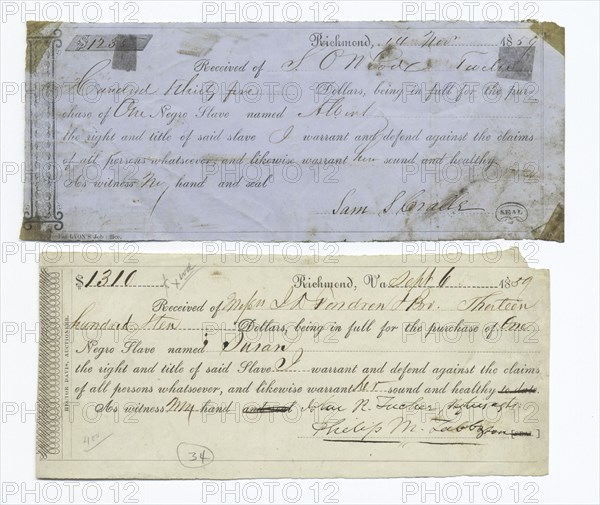 Richmond, 14 Nov 1859
Received of
Hundred thirty five Dollars, being in full for the pur-
chase of One Negro Slave named Albert
the right and title of said slave I warrant and defend against the claims
of all persons whatsoever, and likewise warrant him sound and healthy
As witness My hand and seal
Sam S
SEAL
$1310
Richmond, Va. Sept 6 1859
Received of Messrs Bro. Thirteen
hundred & ten Dollars, being in full for the purchase of One
Negro Slave named Susan
the right and title of said Slave I warrant and defend against the claims
of all persons whatsoever, and likewise warrant her sound and healthy to date
As witness My hand and seal John R. Tucker
Philip M. Tabb
HECTOR DAVIS, AUCTIONEER.
400
34
PHOTO12